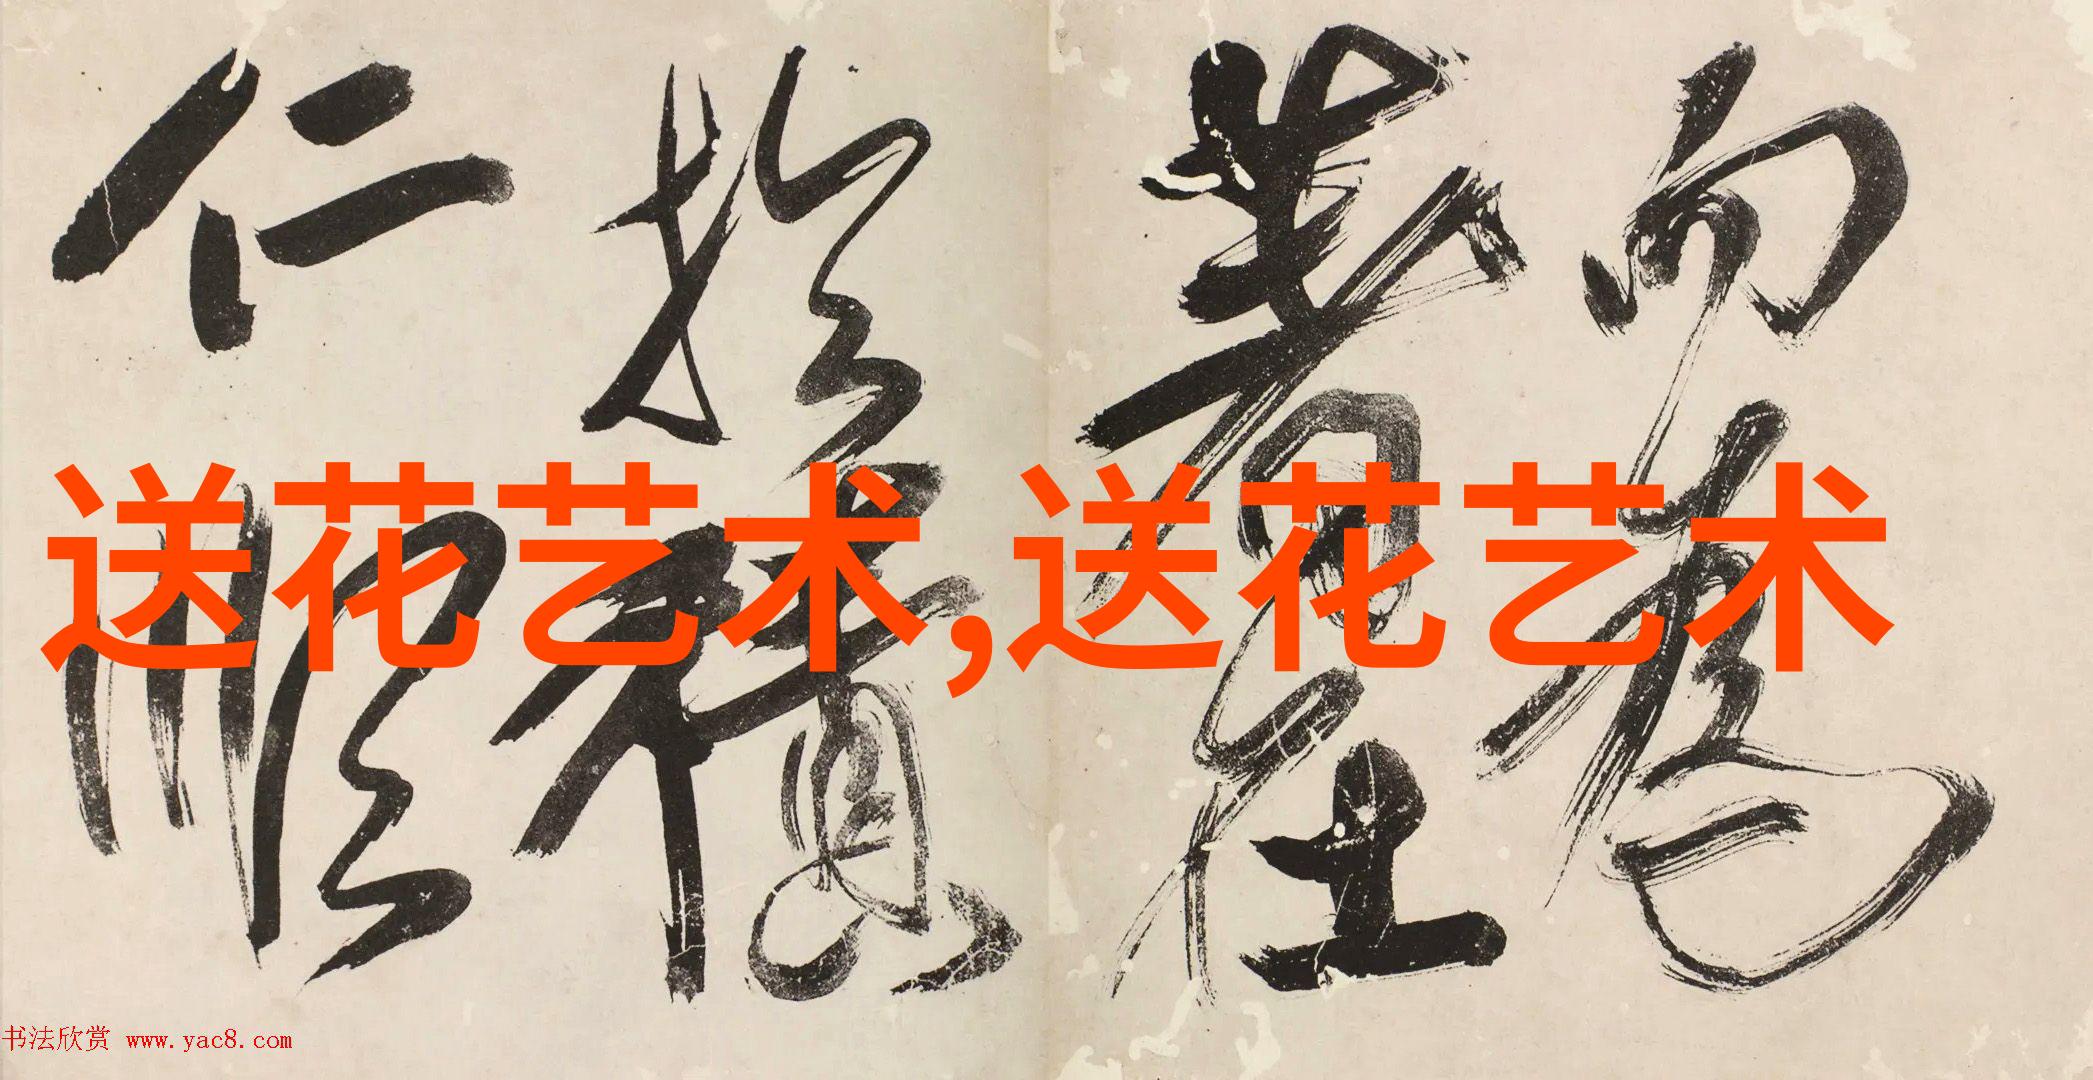 而為
於
仁順
送花艺术,送花艺术
书法欣赏 www.yac8.com